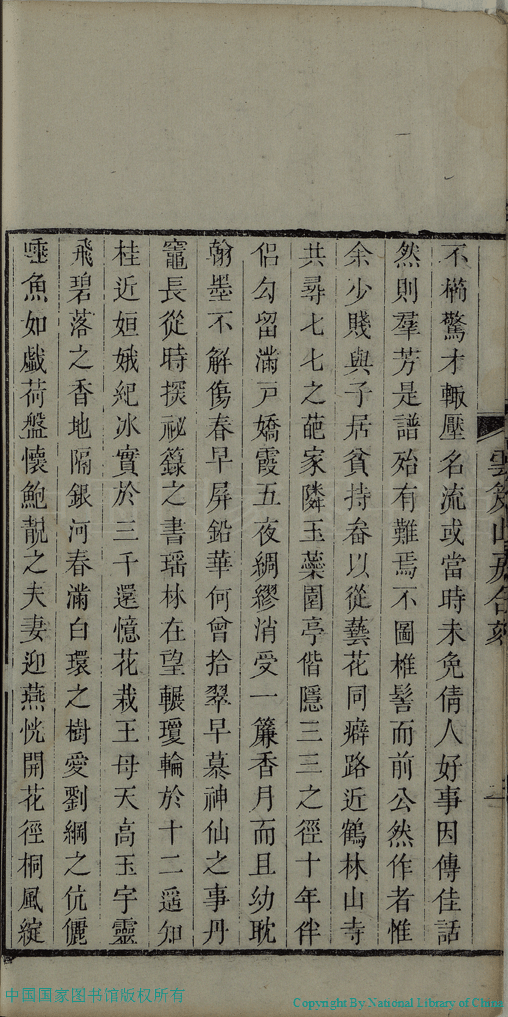 不櫛驚才輙壓名流或當時未免倩人好事因傳佳話
然則羣芳是譜殆有難焉不圖椎髻而前公然作者惟
余少賤與子居貧持畚以從藝花同癖路近鶴林山寺
共尋七七之葩家隣玉蘂園亭偕隱三三之徑十年伴
侣勾留滿戸嬌霞五夜綢繆消受一簾香月而且幼耽
翰墨不解傷春早屏鉛華何曾拾翠早慕神仙之事丹
竈長從時探祕籙之書瑶林在望輾瓊輪於十二遥知
桂近姮娥紀冰實於三千還憶花栽王母天高玉宇靈
飛碧落之香地隔銀河春滿白環之樹愛劉綱之伉儷
唾魚如戲荷盤懷鮑靚之夫妻迎燕恍開花徑桐風綻
雲笈山房合刻
中国国家图书馆版权所有
Copyright By National Library of China